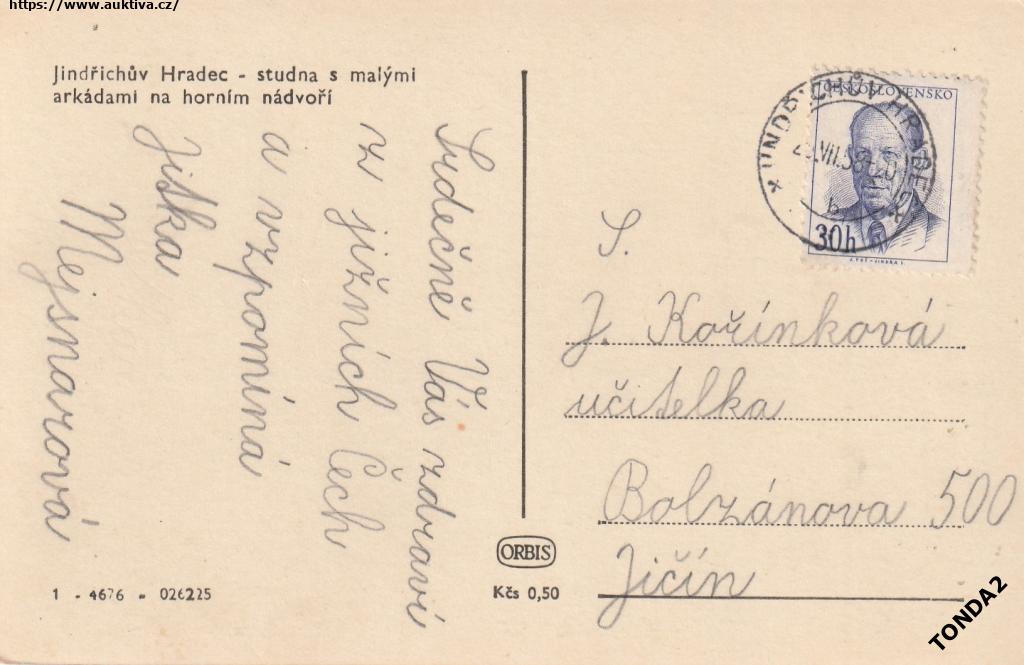 https://www.auktiva.cz/
Jindřichův Hradec - studna s malými
arkádami na horním nádvoří
Srdečně Vás zdraví
z jižních Čech
a vzpomíná
Jitka
Mejsnarová
1 - 4676 - 026225
ORBIS
Kčs 0,50
ČESKOSLOVENSKO
JINDŘICHŮV HRADEC
30h
S.
J. Kořínková
učitelka
Bolzánova 500
Jičín
TONDA2